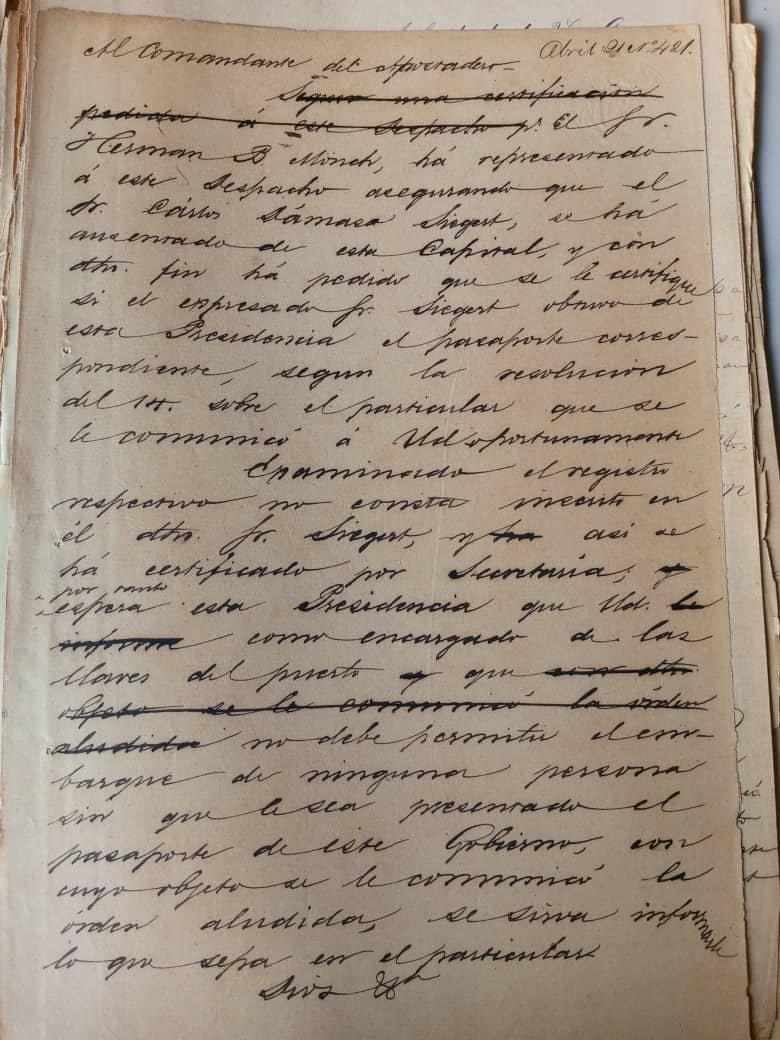 Abril 21 Nº 421.
Al Comandante del Apostadero
Segun una certificacion
pedida á este Despacho pr. El Sr.
Herman B. Mönch, há representado
á este Despacho asegurando que el
Sr. Cárlos Dámaso Siegert, se há
ausentado de esta Capital, y con
dho. fin há pedido que se le certifique
si el expresado Sr. Siegert obtuvo de
esta Presidencia el pasaporte corres-
pondiente, segun la resolucion
del 14. sobre el particular que se
le comunicó á Ud oportunamente
Examinado el registro
respectivo no consta inscrito en
él dho. Sr. Siegert, y ha así se
há certificado por Secretaría; y
por tanto
espera esta Presidencia que Ud. le
informe como encargado de las
llaves del puerto y que con dho.
objeto se le comunicó la órden
aludida no debe permitir el em-
barque de ninguna persona
sin que le sea presentado el
pasaporte de este Gobierno, con
cuyo objeto se le comunicó la
órden aludida, se sirva informarle
lo que sepa en el particular
Dios &a